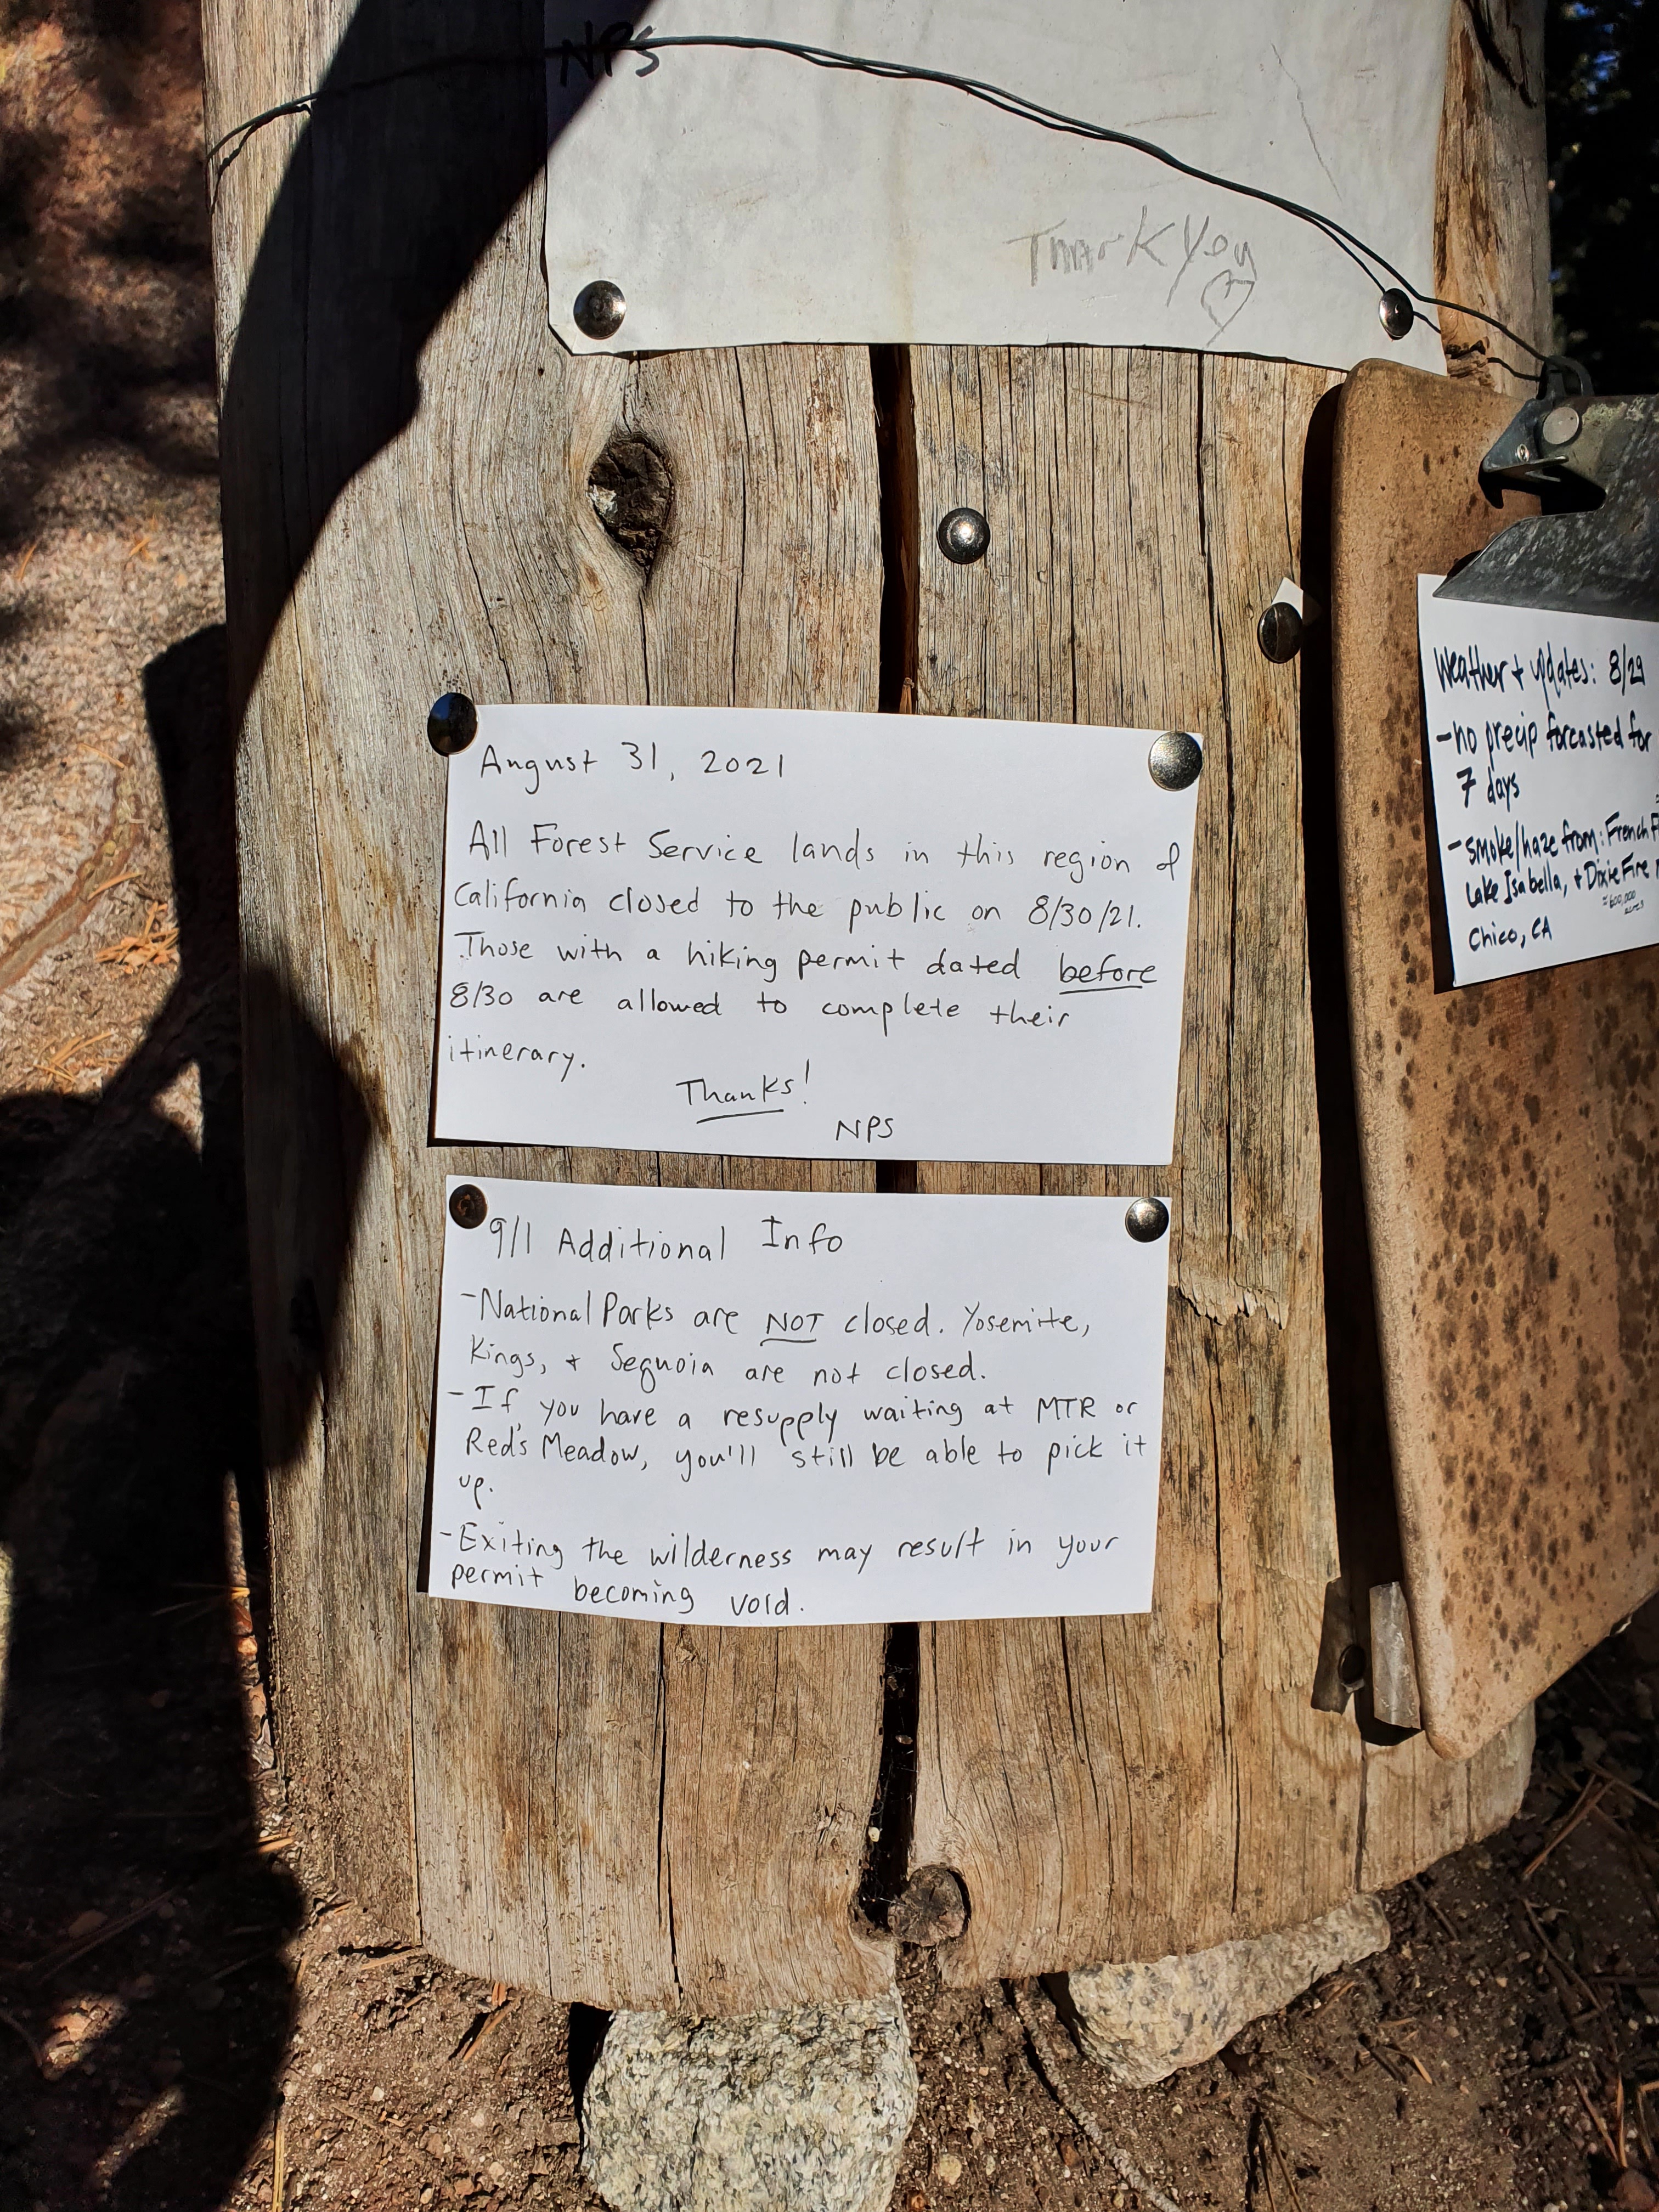 NPS
Thank You
August 31, 2021
All Forest Service lands in this region of
California closed to the public on 8/30/21.
Those with a hiking permit dated before
8/30 are allowed to complete their
itinerary.
Thanks!
NPS
9/1 Additional Info
-National Parks are NOT closed. Yosemite,
Kings, + Sequoia are not closed.
-If you have a resupply waiting at MTR or
Red's Meadow, you'll still be able to pick it
up.
-Exiting the wilderness may result in your
permit becoming void.
Weather + updates: 8/29
-no precip forcasted for
7 days
-smoke/haze from: French
Lake Isabella, + Dixie Fire
≈600,000
acres
Chico, CA